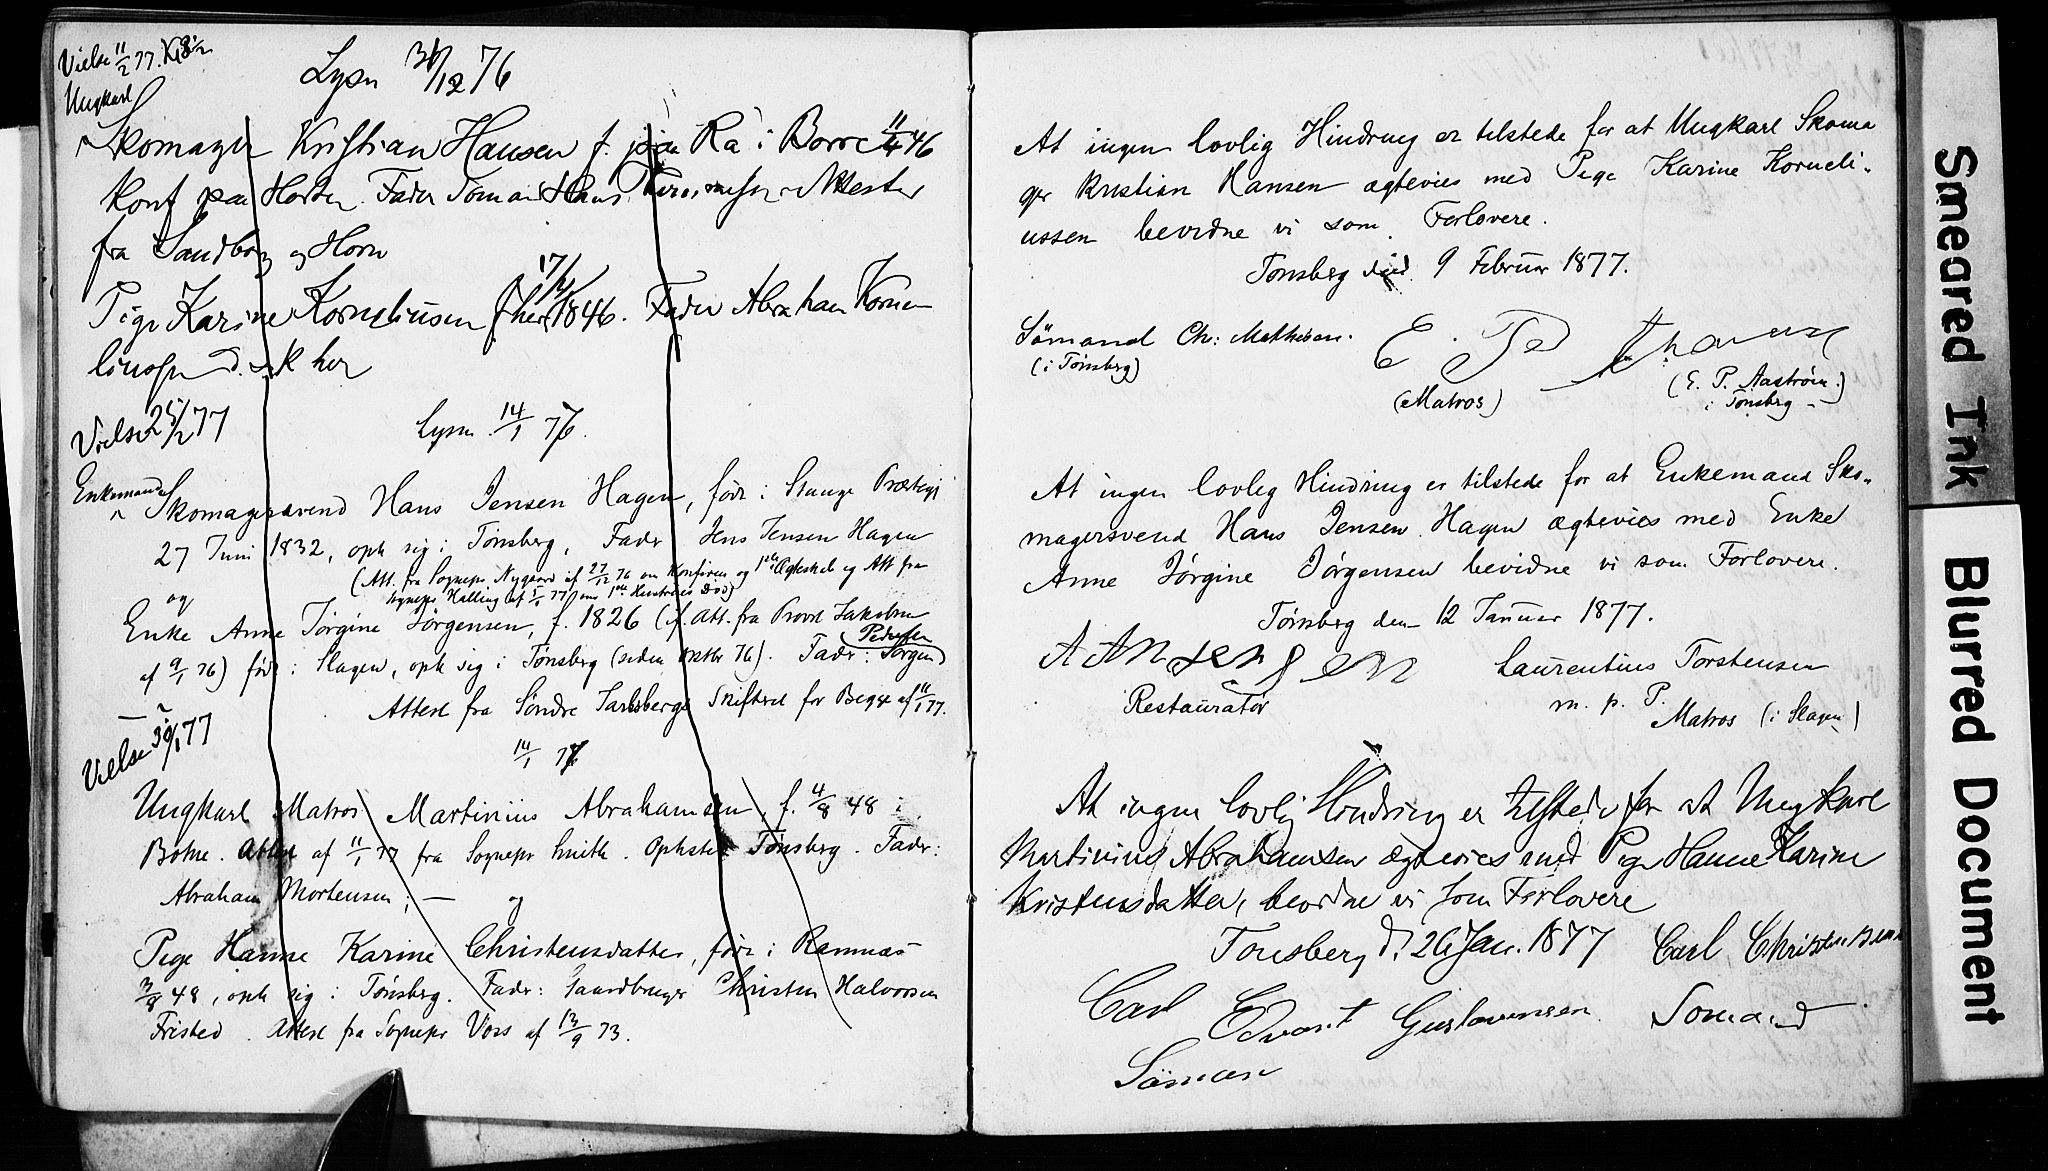 Vielse 11/2 77. Kl 8 1/2
Lysn 31/12 76
Ungkarl
Skomager Kristian Hansen f. paa Ra i Borre 11/4 46
Konf paa Horten. Fader Tomand Hans Attester
fra Sandberg og Horn
Pige Karine Korneliusen f her 17/ 1846. Fader Abraham Korne
liussen D. & K her
Vielse 25/2 77
Lysn. 14/1 76.
Enkemand
Skomagersvend Hans Jensen Hagen, født i Stange Præstegj
27 Juni 1832, oph sig i Tønsberg, Fader Jens Jensen Hagen
(Att. fra Sognepr. Nygaard af 27/12 76 om Konfirm og 1ste Ægteskab og Att fra
Sognepr Halling af 5/1 77 om 1ste Kones Død)
og
Enke Anne Jørgine Jørgensen, f. 1826 (f. Att. fra Provst Jakobsen
af 9/1 76) født i Slagen, oph sig i Tønsberg (siden Oktbr 76). Fader: Jørgen
Pedersen
Attest fra Søndre Jarlsbergs Skifteret for Begge af 11/1 77.
Vielse 30/1 77
14/1 77
Ungkarl Matros Martinius Abrahamsen, f. 4/8 48 i
Botne. Attest af 11/1 77 fra Sognepr Smith. Opholdst Tønsberg. Fader:
Abraham Mortensen; — og
Pige Hanne Karine Christensdatter, født i Ramnæs
3/8 48, oph sig i Tønsberg. Fader: Gaardbruger Christen Halvorsen
Fristed. Attest fra Sognepr Voss af 13/9 73.
At ingen lovlig Hindring er tilstede for at Ungkarl Skoma
ger Kristian Hansen ægtevies med Pige Karine Korneli-
ussen bevidne vi som Forlovere.
Tønsberg den 9 Februar 1877.
Sömand Ch: Mathisen.
(i Tønsberg)
E. Ped
(Matros)
(E. P. Aastrøm)
i Tønsberg
At ingen lovlig Hindring er tilstede for at Enkemand Sko-
magersvend Hans Jensen Hagen ægtevies med Enke
Anne Jørgine Jørgensen bevidne vi som Forlovere.
Tønsberg den 12 Januar 1877.
Laurentius Torstensen
Restauratør
m. p. P.
Matros (i Slagen)
At ingen lovlig Hindring er tilstede for at Ungkarl
Martinius Abrahamsen ægtevies med Pige Hanne Karine
Kristensdatter, bevidne vi som Forlovere
Tønsberg d. 26 Jan. 1877 Carl Christensen
Carl Edvart Gustavensen. Somand
Söman
Smeared Ink
Blurred Document